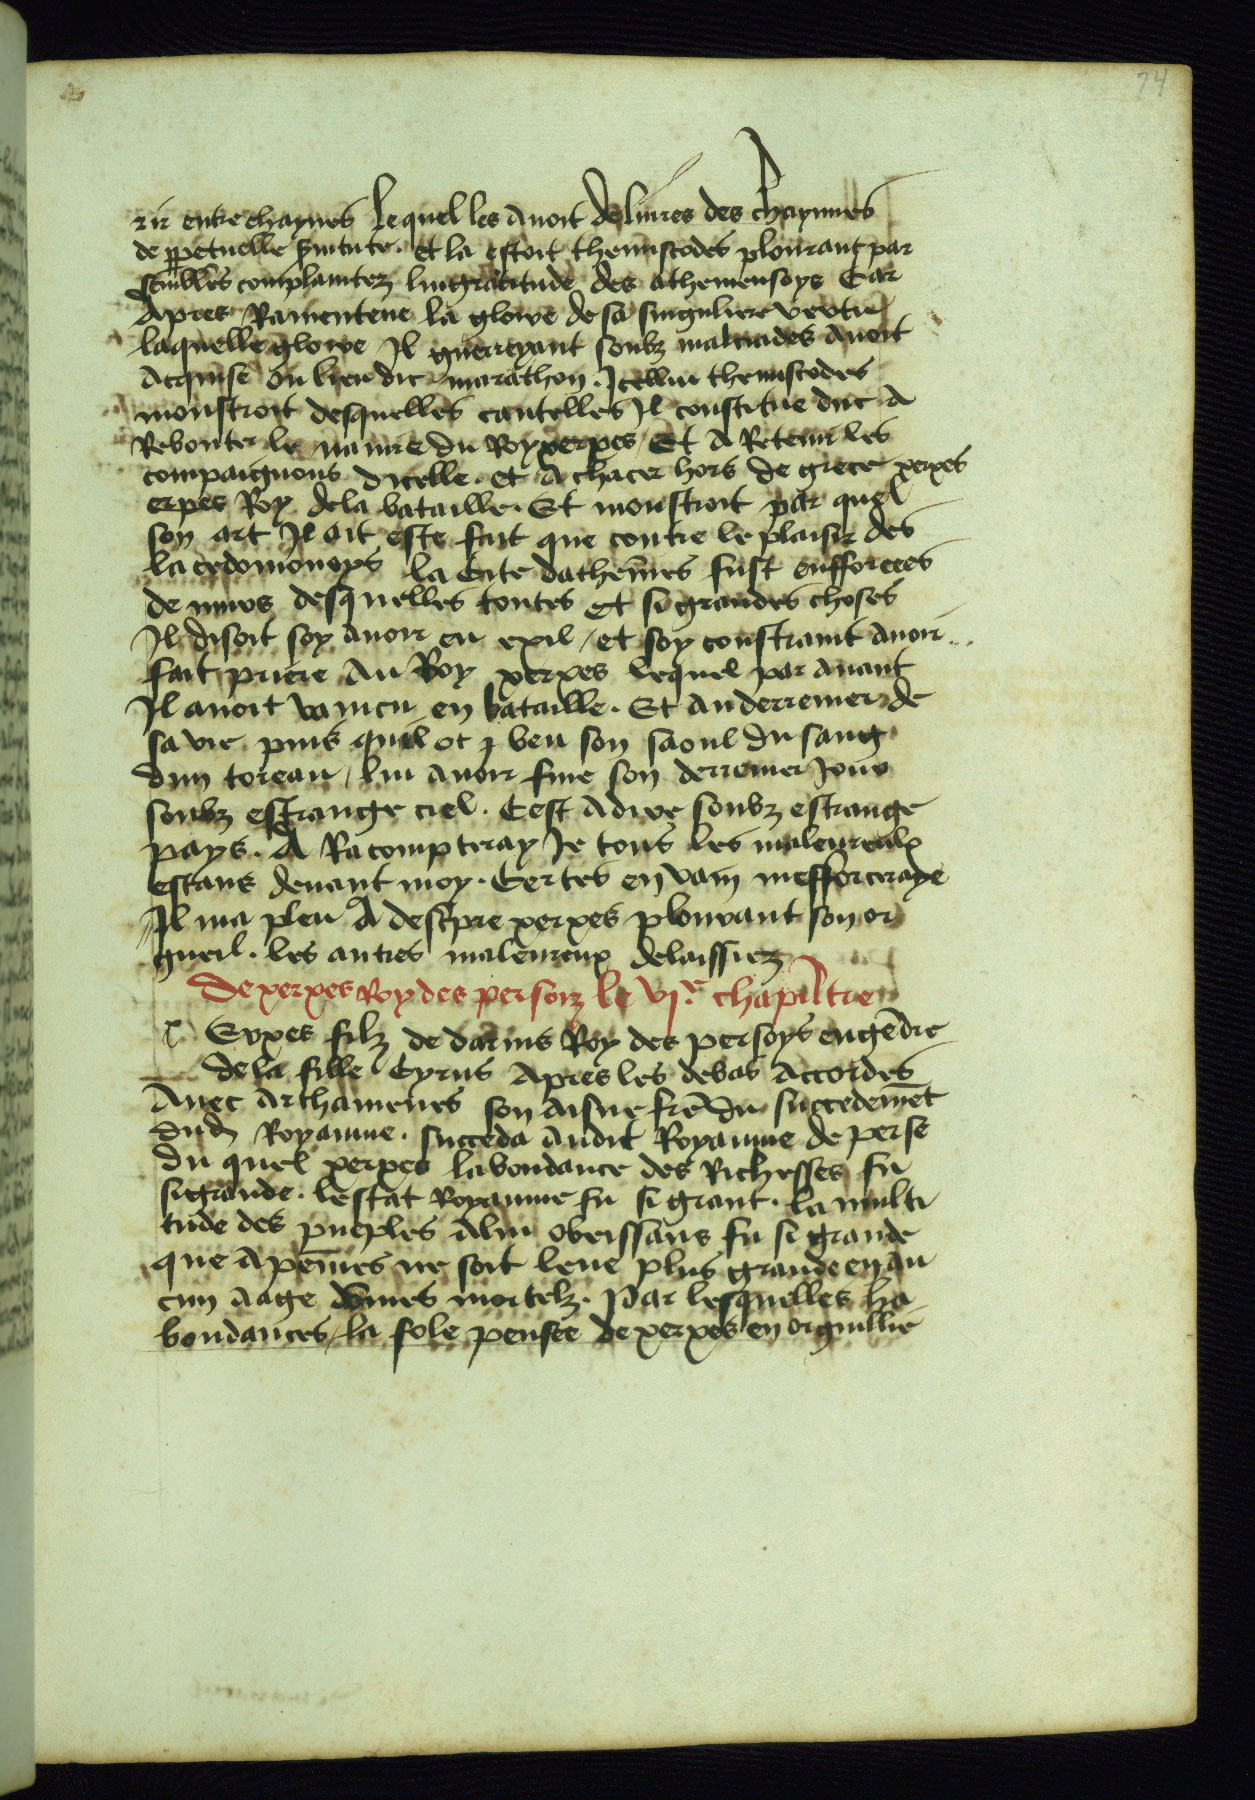 74
rir entre chaynes lequel les avoit delivres des chaynnes
de ppetuelle svitute. et la estoit themistodes plourant par
semblles complaintez lingratitude des atheniensoys Car
Apres Ramenteue la gloire de sa singuliere vertu
laquelle gloire Il guerreyant soubz malciades Avoit
Acquise ou lieu dit marathon. Icellui themistodes
monstroit desquelles cautelles Il constitue duc A
Rebouter le navire du Roy xerxes Et A Retenir les
compaignons dicelle. et A chacer hors de grece xerxes
erxes Roy de la bataille. Et monstroit par quel
son art Il oit este fait que contre le plaisir des
lacedomonoys la Cite dathenes fust enfforcees
de murs desquelles toutes et si grandes choses
Il disoit soy avoir en exil / et soy constraint avoir
fait priere Au Roy xerxes lequel par avant
Il avoit vaincu en bataille. Et au derrenier de
sa vie puis quil ot beu son saoul du sang
dun toreau / lui avoir fine son derrenier Jour
soubz estrange ciel. Cest Adire soubz estrange
pays. A Racompteray Je tous les maleureulx
estans devant moy. Certes en vain mefforceraye
Il ma pleu A descpre xerxes plourant son or
gueil. les autres maleureux delaissiez
De xerxes Roy des persoiz le vje chapitre
x Erxes filz de darius Roy des persoys engēdre
de la fille Cyrus Apres les debas Accordes
Avec Arthamenes son aisne frē du succedemēt
dud Royaume. succeda audit Royaume de perse
du quel xerxes labondance des Richesses fu
si grande. lestat Royaume fu si grant. la multi
tude des pueples Alui obeissans fu si grande
que Apeines ne soit leue plus grande en au
cun Aage dōmes mortelz. Par lesquelles ha
bondances / la fole pensee de xerxes en orguillie